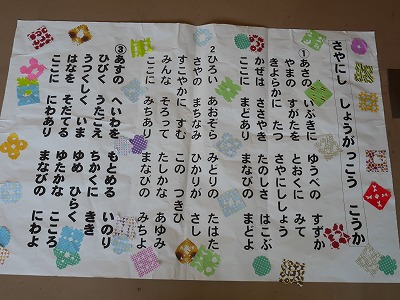 さやにし しょうがっこう こうか
①あさの いぶきに ゆうべの すずか
やまの すがたを とおくに みて
きよらかに たつ さやにししょう
かぜは ささやき たのしさ はこぶ
ここに まどあり まなびの まどよ
2 ひろい あおぞら みどりの たはた
さやの まちなみ ひかりが さし
すこやかに すむ この つきひ
みんな そろって たしかな あゆみ
ここに みちあり まなびの みちよ
③あすの へいわを もとめる いのり
ひびく うたごえ ちかくに きき
うつくしく いま ゆめ ひらく
はなを そだてる ゆたかな こころ
ここに にわあり まなびの にわよ